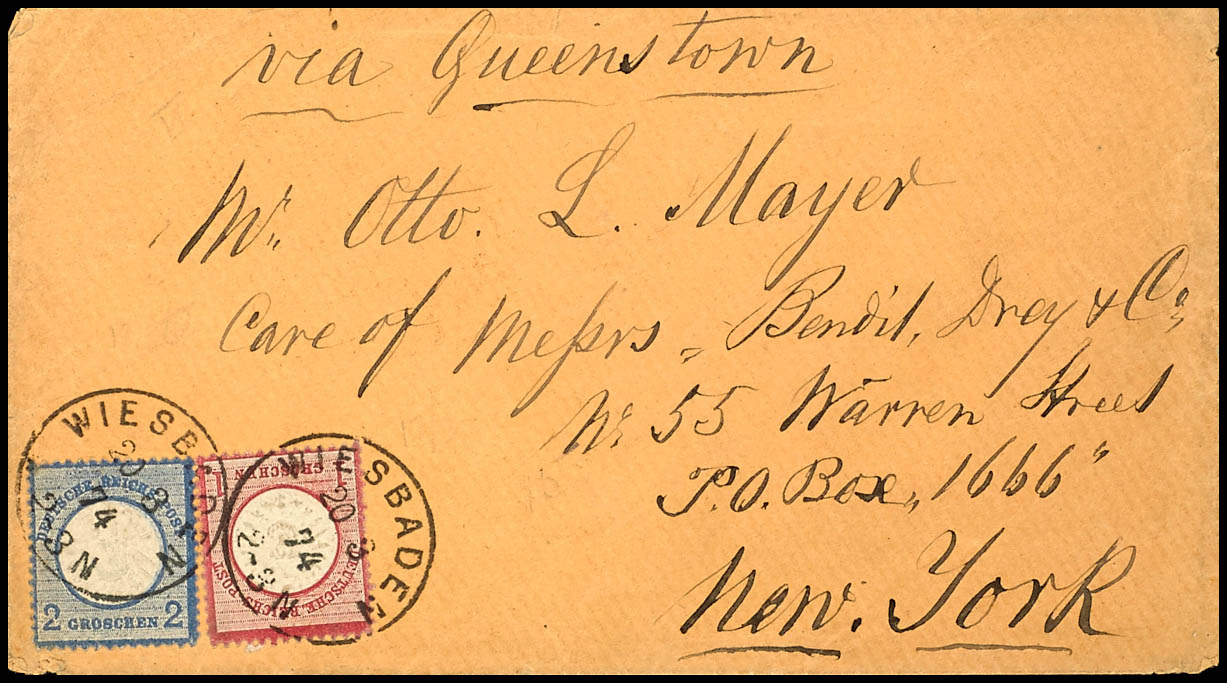 via Queenstown
Mr. Otto. L. Mayer
Care of Messrs = Bendit, Drey & Co.
No. 55 Warren Street
P.O. Box, 1666"
New. York
WIESBADEN
20 3
74
2-3 N
DEUTSCHE REICHS-POST
2 GROSCHEN 2
WIESBADEN
20 3
74
2-3 N
1 GROSCHEN 1
DEUTSCHE REICHS-POST